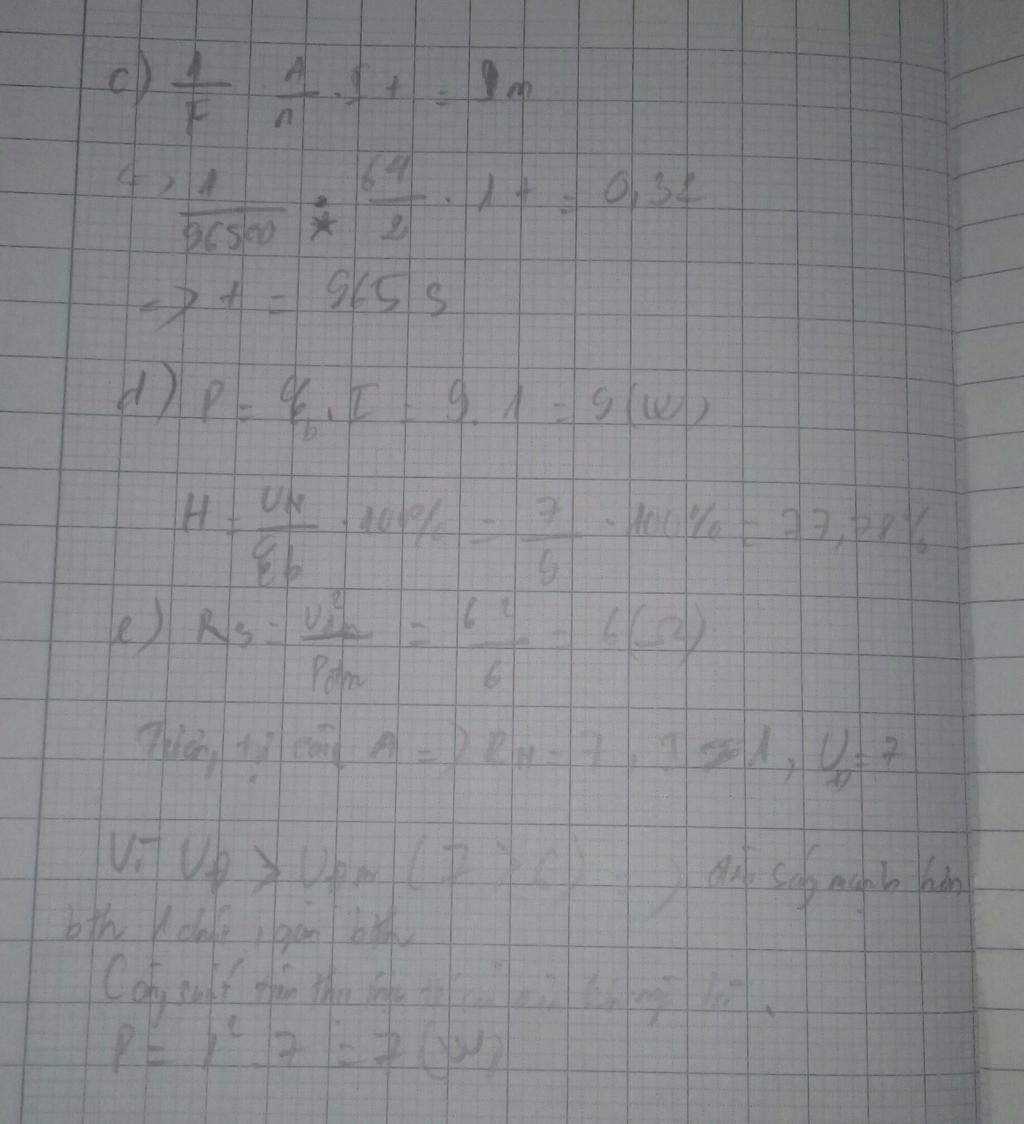 c) 1/F . A/n . I t = m
<=> 1/96500 . 64/2 . 1 t = 0,32
=> t = 965 s
d) P = ξb . I = 9 . 1 = 9 (W)
H = UN/ξb . 100% = 7/9 . 100% = 77,78%
e) R3 = Uđm²/Pđm = 6²/6 = 6 (Ω)
A => RN = 7, I = 1, U = 7
Vì Uđ > Uđm (7 > 6) đèn sáng mạnh hơn
bth
Công suất
P = 1² . 7 = 7 (W)